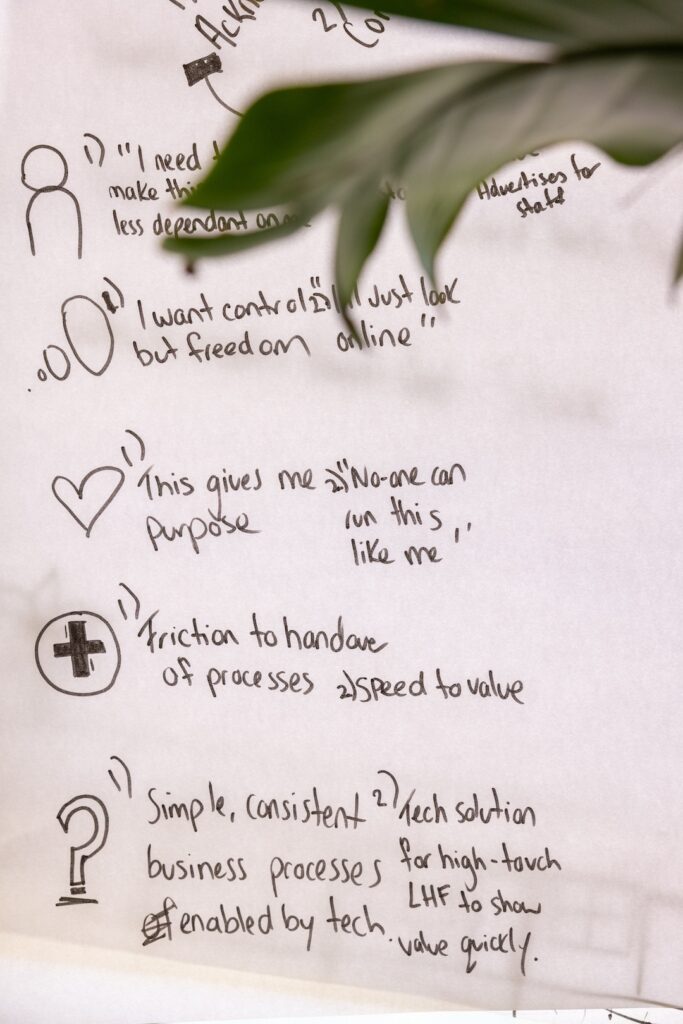 2)
1) "I need
make this
less dependant on
Advertises for
staff
1) I want control 2) "I'll Just look
but freedom online"
1) This gives me 2) "No-one can
purpose run this
like me"
1) Friction to handover
of processes 2) Speed to value
1) Simple, consistent 2) Tech solution
business processes for high-touch
enabled by tech. LHF to show
value quickly.